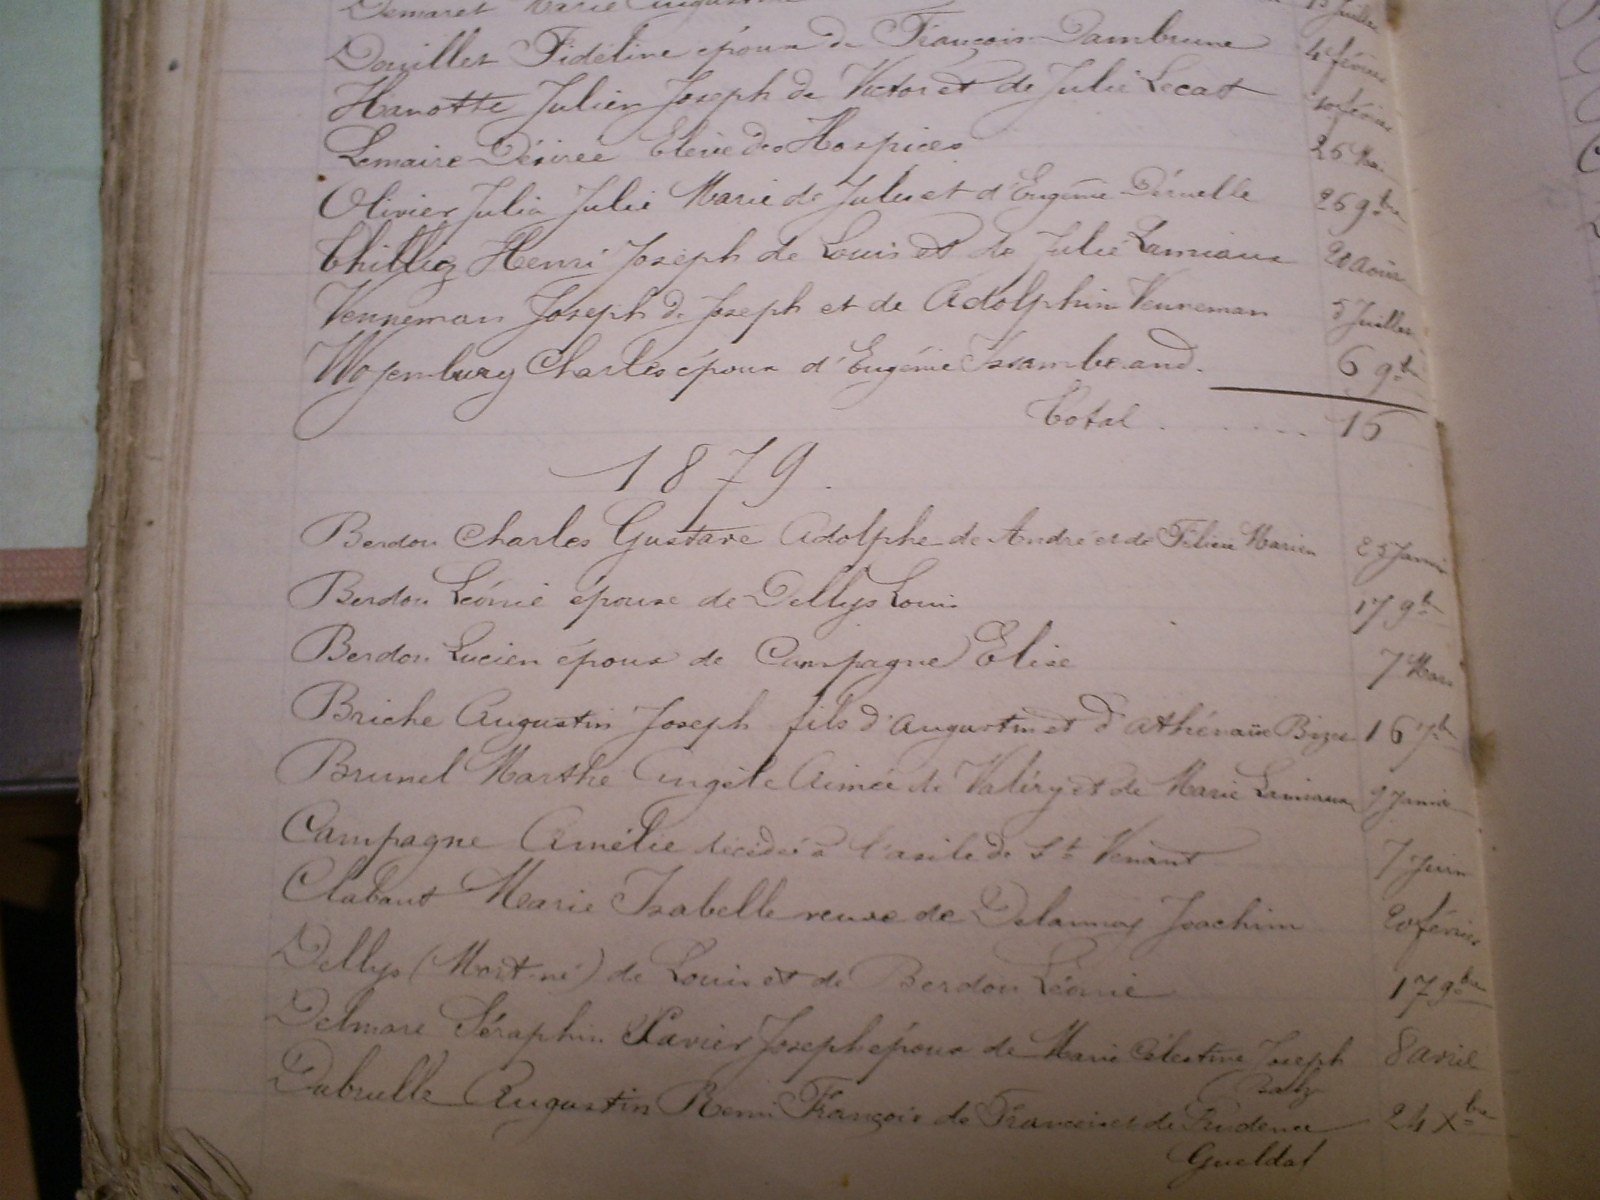 Demaret Marie 13 Juillet
Douillet Fidéline épouse de François Dambrune 4 février
Hanotte Julien Joseph de Victor et de Julie Lecat 10 février
Lemaire Désirée Elève des Hospices 26 Mai
Olivier Julia Julie Marie de Jules et d'Eugénie Déruelle 26 9bre
Thilliez Henri Joseph de Louis et de Julie Lamiaux 20 Août
Venneman Joseph de Joseph et de Adolphine Venneman 5 Juillet
Charles époux d'Eugénie 6 9bre
Total 15
1879.
Berdou Charles Gustave Adolphe de André et de Félicie Marien 25 Janvier
Berdou Léonie épouse de Dellys Louis 17 9bre
Berdou Lucien époux de Campagne Elise 7 Mars
Briche Augustin Joseph fils d'Augustin et d'Athénaïse Bize 16 7bre
Brunel Marthe Angèle Aimée de Valéry et de Marie Lamiaux 9 Janvier
Campagne Amélie décédée à l'asile de St Venant 7 Juin
Clabaut Marie Isabelle veuve de Delannoy Joachim 20 février
Dellys (Mort-né) de Louis et de Berdou Léonie 17 9bre
Delmare Séraphin Xavier Joseph époux de Marie Célestine Joseph 8 avril
Dubruelle Augustin Remi François de François et de Prudence 24 Xbre
Gueldat